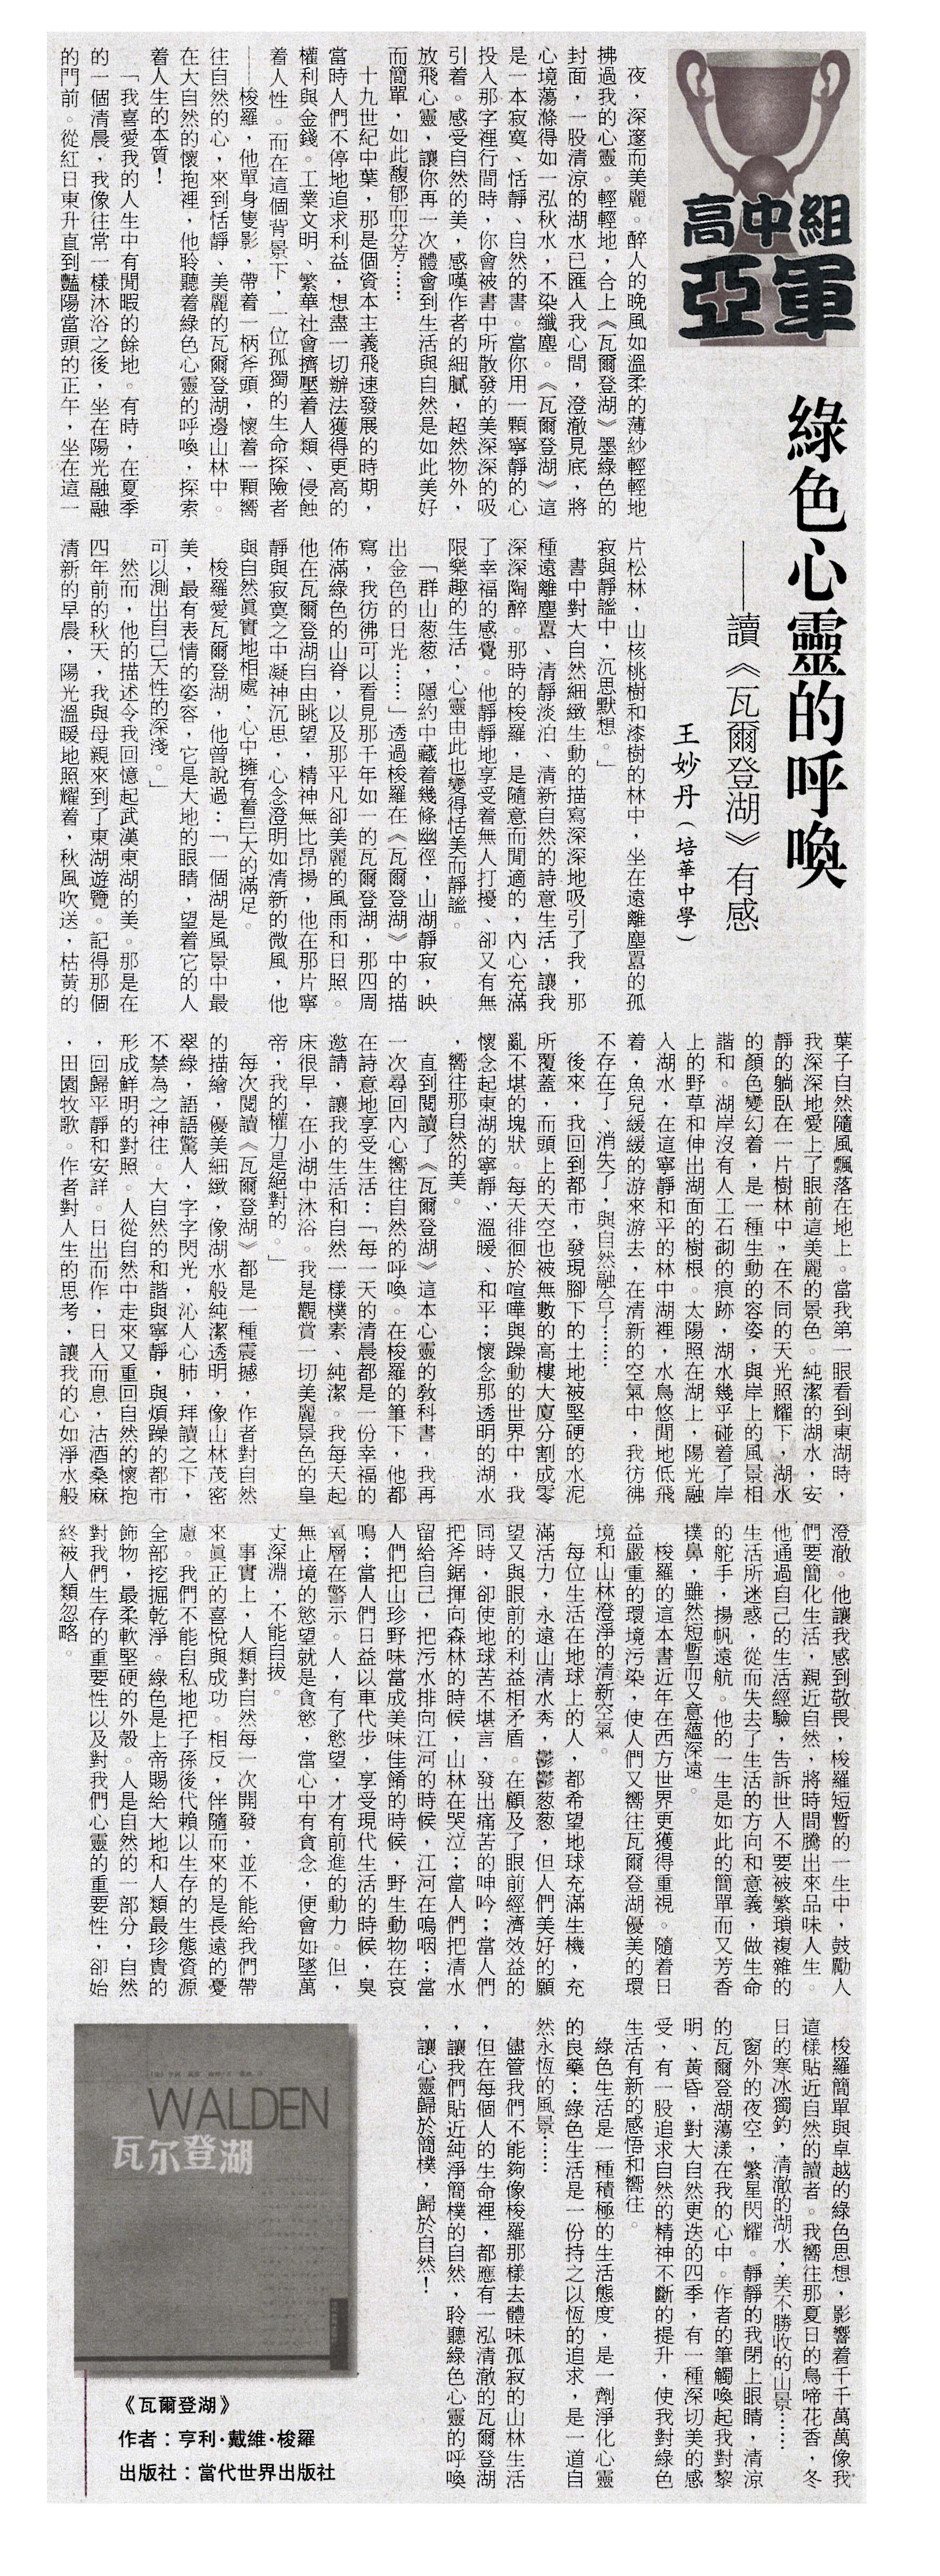 高中組
亞軍
綠色心靈的呼喚
——讀《瓦爾登湖》有感
王妙丹（培華中學）
夜，深邃而美麗。醉人的晚風如溫柔的薄紗輕輕地
拂過我的心靈。輕輕地，合上《瓦爾登湖》墨綠色的
封面，一股清涼的湖水已匯入我心間，澄澈見底，將
心境蕩滌得如一泓秋水，不染纖塵。《瓦爾登湖》這
是一本寂寞、恬靜、自然的書。當你用一顆寧靜的心
投入那字裡行間時，你會被書中所散發的美深深的吸
引着。感受自然的美，感嘆作者的細膩，超然物外，
放飛心靈，讓你再一次體會到生活與自然是如此美好
而簡單，如此馥郁而芬芳……
十九世紀中葉，那是個資本主義飛速發展的時期，
當時人們不停地追求利益，想盡一切辦法獲得更高的
權利與金錢。工業文明、繁華社會擠壓着人類、侵蝕
着人性。而在這個背景下，一位孤獨的生命探險者
——梭羅，他單身隻影，帶着一柄斧頭，懷着一顆嚮
往自然的心，來到恬靜、美麗的瓦爾登湖邊山林中。
在大自然的懷抱裡，他聆聽着綠色心靈的呼喚，探索
着人生的本質！
「我喜愛我的人生中有閒暇的餘地。有時，在夏季
的一個清晨，我像往常一樣沐浴之後，坐在陽光融融
的門前。從紅日東升直到豔陽當頭的正午，坐在這一
片松林，山核桃樹和漆樹的林中，坐在遠離塵囂的孤
寂與靜謐中，沉思默想。」
書中對大自然細緻生動的描寫深深地吸引了我，那
種遠離塵囂、清靜淡泊、清新自然的詩意生活，讓我
深深陶醉。那時的梭羅，是隨意而閒適的，內心充滿
了幸福的感覺。他靜靜地享受着無人打擾、卻又有無
限樂趣的生活，心靈由此也變得恬美而靜謐。
「群山葱葱，隱約中藏着幾條幽徑，山湖靜寂，映
出金色的日光……」透過梭羅在《瓦爾登湖》中的描
寫，我彷彿可以看見那千年如一的瓦爾登湖，那四周
佈滿綠色的山脊，以及那平凡卻美麗的風雨和日照。
他在瓦爾登湖自由眺望，精神無比昂揚，他在那片寧
靜與寂寞之中凝神沉思，心念澄明如清新的微風，他
與自然真實地相處，心中擁有着巨大的滿足。
梭羅愛瓦爾登湖，他曾說過：「一個湖是風景中最
美，最有表情的姿容，它是大地的眼睛，望着它的人
可以測出自己天性的深淺。」
然而，他的描述令我回憶起武漢東湖的美。那是在
四年前的秋天，我與母親來到了東湖遊覽。記得那個
清新的早晨，陽光溫暖地照耀着，秋風吹送，枯黃的
葉子自然隨風飄落在地上。當我第一眼看到東湖時，
我深深地愛上了眼前這美麗的景色。純潔的湖水，安
靜的躺臥在一片樹林中，在不同的天光照耀下，湖水
的顏色變幻着，是一種生動的容姿，與岸上的風景相
諧和。湖岸沒有人工石砌的痕跡，湖水幾乎碰着了岸
上的野草和伸出湖面的樹根。太陽照在湖上，陽光融
入湖水，在這寧靜和平的林中湖裡，水鳥悠閒地低飛
着，魚兒緩緩的游來游去，在清新的空氣中，我彷彿
不存在了、消失了，與自然融合了……
後來，我回到都市，發現腳下的土地被堅硬的水泥
所覆蓋，而頭上的天空也被無數的高樓大廈分割成零
亂不堪的塊狀。每天徘徊於喧嘩與躁動的世界中，我
懷念起東湖的寧靜、溫暖、和平；懷念那透明的湖水
，嚮往那自然的美。
直到閱讀了《瓦爾登湖》這本心靈的教科書，我再
一次尋回內心嚮往自然的呼喚。在梭羅的筆下，他都
在詩意地享受生活：「每一天的清晨都是一份幸福的
邀請，讓我的生活和自然一樣樸素、純潔。我每天起
床很早，在小湖中沐浴。我是觀賞一切美麗景色的皇
帝，我的權力是絕對的。」
每次閱讀《瓦爾登湖》都是一種震撼，作者對自然
的描繪，優美細緻，像湖水般純潔透明，像山林茂密
翠綠，語語驚人，字字閃光，沁人心肺，拜讀之下，
不禁為之神往。大自然的和諧與寧靜，與煩躁的都市
形成鮮明的對照。人從自然中走來又重回自然的懷抱
，回歸平靜和安詳。日出而作，日入而息，沽酒桑麻
，田園牧歌。作者對人生的思考，讓我的心如淨水般
澄澈。他讓我感到敬畏，梭羅短暫的一生中，鼓勵人
們要簡化生活，親近自然，將時間騰出來品味人生。
他通過自己的生活經驗，告訴世人不要被繁瑣複雜的
生活所迷惑，從而失去了生活的方向和意義，做生命
的舵手，揚帆遠航。他的一生是如此的簡單而又芳香
撲鼻，雖然短暫而又意蘊深遠。
梭羅的這本書近年在西方世界更獲得重視。隨着日
益嚴重的環境污染，使人們又嚮往瓦爾登湖優美的環
境和山林澄淨的清新空氣。
每位生活在地球上的人，都希望地球充滿生機，充
滿活力，永遠山清水秀，鬱鬱葱葱，但人們美好的願
望又與眼前的利益相矛盾。在顧及了眼前經濟效益的
同時，卻使地球苦不堪言，發出痛苦的呻吟；當人們
把斧鋸揮向森林的時候，山林在哭泣；當人們把清水
留給自己，把污水排向江河的時候，江河在嗚咽；當
人們把山珍野味當成美味佳餚的時候，野生動物在哀
鳴；當人們日益以車代步，享受現代生活的時候，臭
氧層在警示。人，有了慾望，才有前進的動力。但，
無止境的慾望就是貪慾，當心中有貪念，便會如墜萬
丈深淵，不能自拔。
事實上，人類對自然每一次開發，並不能給我們帶
來真正的喜悅與成功。相反，伴隨而來的是長遠的憂
慮。我們不能自私地把子孫後代賴以生存的生態資源
全部挖掘乾淨。綠色是上帝賜給大地和人類最珍貴的
飾物，最柔軟堅硬的外殼。人是自然的一部分，自然
對我們生存的重要性以及對我們心靈的重要性，卻始
終被人類忽略。
梭羅簡單與卓越的綠色思想，影響着千千萬萬像我
這樣貼近自然的讀者。我嚮往那夏日的鳥啼花香，冬
日的寒冰獨釣，清澈的湖水，美不勝收的山景……
窗外的夜空，繁星閃耀。靜靜的我閉上眼睛，清涼
的瓦爾登湖蕩漾在我的心中。作者的筆觸喚起我對黎
明、黃昏，對大自然更迭的四季，有一種深切美的感
受，有一股追求自然的精神不斷的提升，使我對綠色
生活有新的感悟和嚮往。
綠色生活是一種積極的生活態度，是一劑淨化心靈
的良藥；綠色生活是一份持之以恆的追求，是一道自
然永恆的風景……
儘管我們不能夠像梭羅那樣去體味孤寂的山林生活
，但在每個人的生命裡，都應有一泓清澈的瓦爾登湖
，讓我們貼近純淨簡樸的自然，聆聽綠色心靈的呼喚
，讓心靈歸於簡樸，歸於自然！
WALDEN
瓦尔登湖
《瓦爾登湖》
作者：亨利·戴維·梭羅
出版社：當代世界出版社